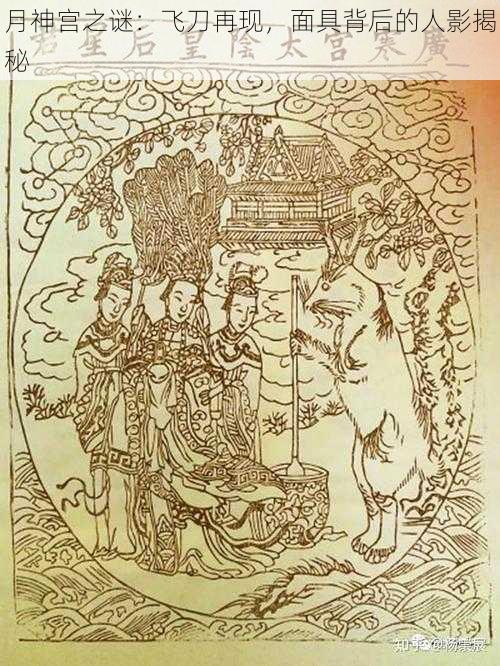 月神宫之谜：飞刀再现，面具背后的人影揭
秘
廣寒宮太陰皇后星君
知乎